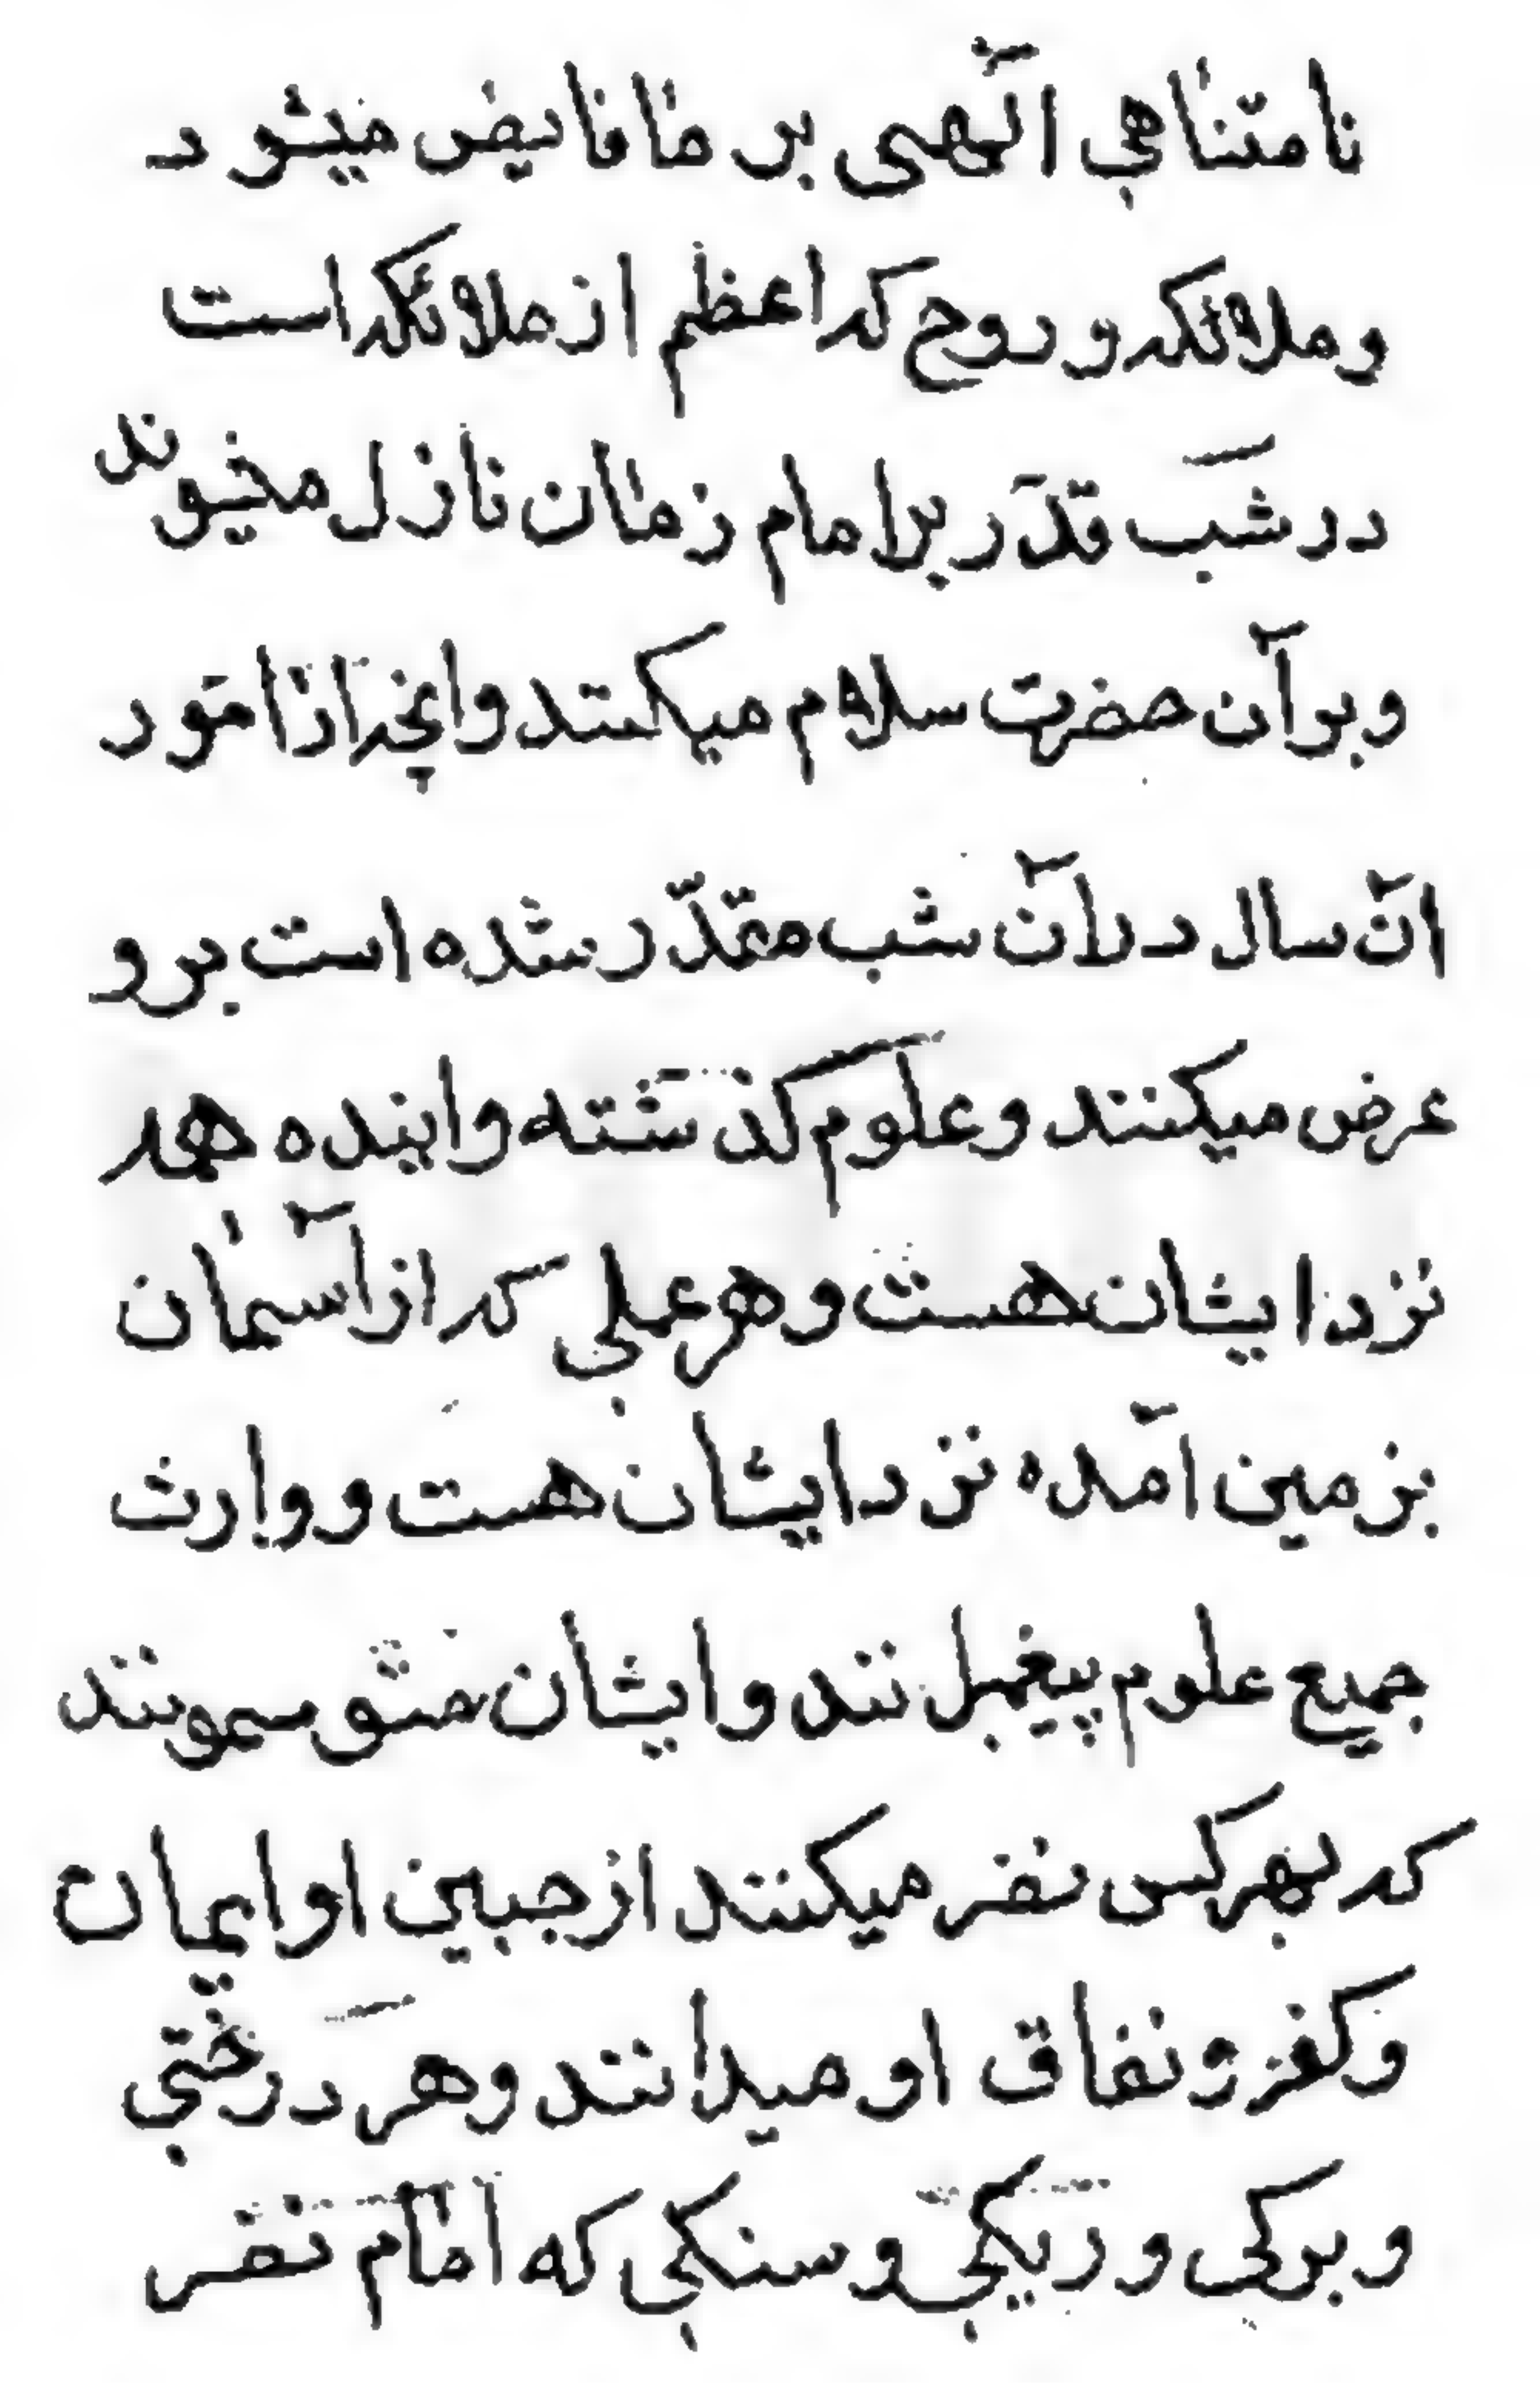 نامتناهي الٓهی بر ما فایض میشود
و ملائکه و روح که اعظم از ملائکه است
در شب قدر بر امام زمان نازل میشوند
و بر آن حضرت سلام میکنند و انچه از امور
آن سال در آن شب مقدّر شده است بر و
عرض میکنند و علوم کذشته و اینده همه
نزد ایشان هست و هر علمي که از آسمان
بزمین آمده نزد ایشان هست و وارث
جمیع علوم پیغمبرانند و ایشان متوسمونند
که بهر کس نظر میکنند از جبین او ایمان
و کفر و نفاق او میدانند و هر درختي
و برکی و ریکي و سنکي که امام نظر